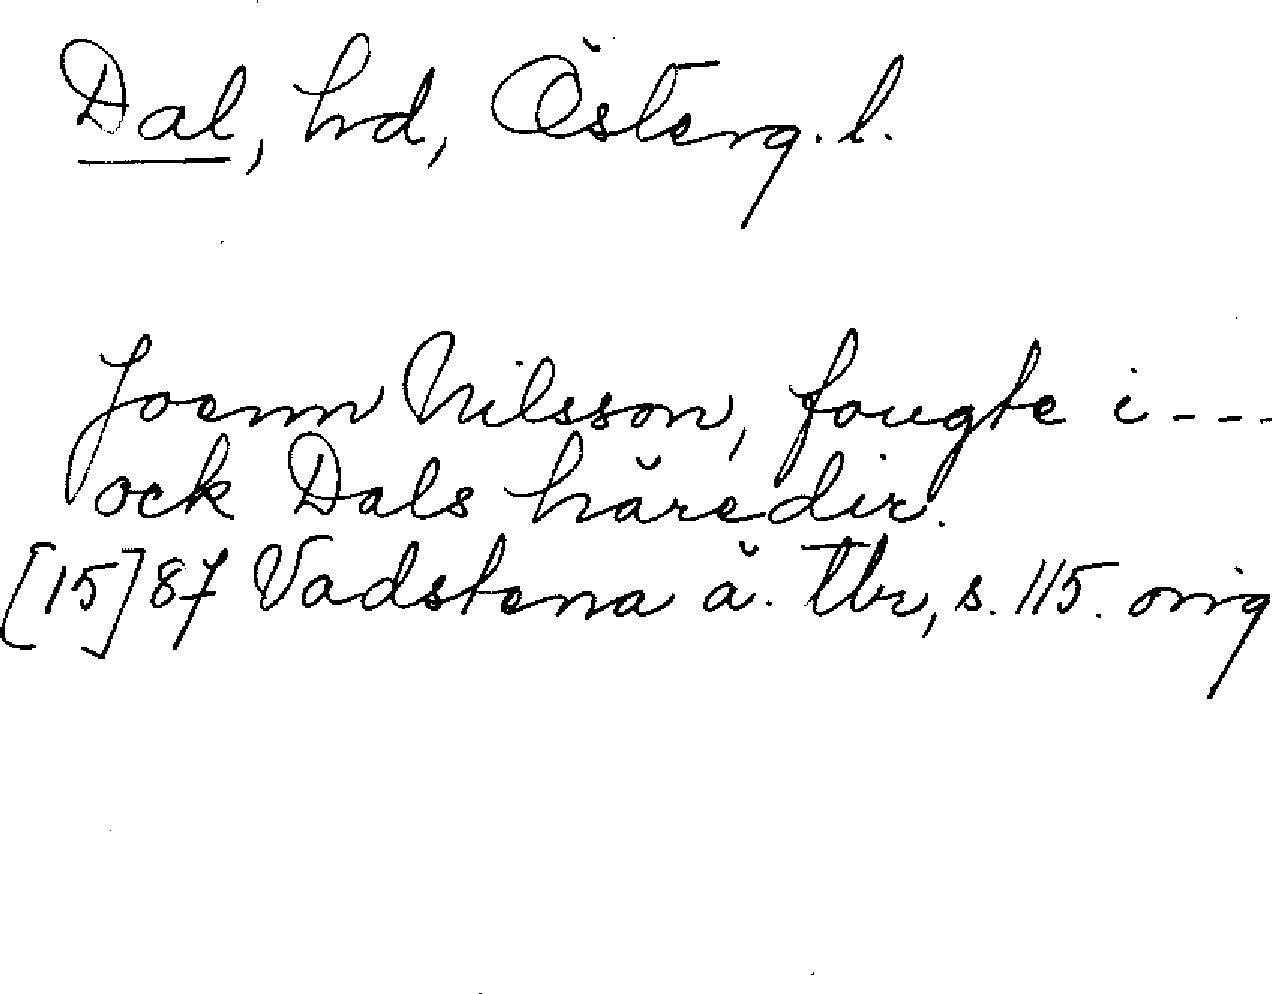 Dal, hd, Österg. l.
Joenn Nilsson, fougte i ---
ock Dals häredir.
[15]87 Vadstena ä. tbr, s. 115. orig